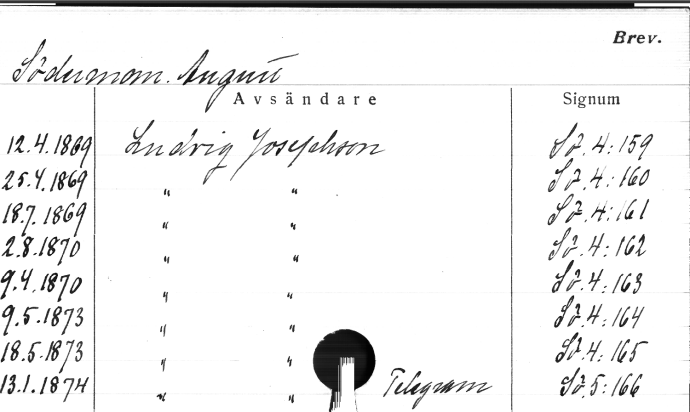 Brev.
Söderman. August
Avsändare Signum
12.4.1869 Ludvig Josephson Sö. 4:159
25.4.1869 " " Sö. 4:160
18.7.1869 " " Sö. 4:161
2.8.1870 " " Sö. 4:162
9.4.1870 " " Sö. 4:163
9.5.1873 " " Sö. 4:164
18.5.1873 " " Sö. 4:165
13.1.1874 " " Telegram Sö. 5:166